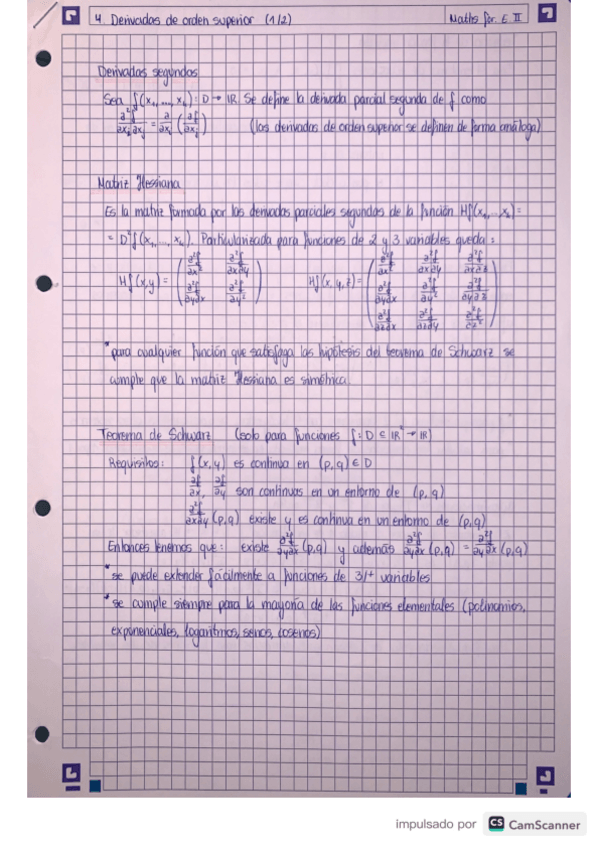 4. Derivadas de orden superior (1/2)
Maths for E II
Derivadas segundas
Sea f(x₁, ..., xₖ): D → ℝ. Se define la derivada parcial segunda de f como
∂²f/∂xᵢ∂xⱼ = ∂/∂xᵢ (∂f/∂xⱼ) (las derivadas de orden superior se definen de forma análoga)
Matriz Hessiana
Es la matriz formada por las derivadas parciales segundas de la función Hf(x₁, ... xₖ) =
= D²f(x₁, ..., xₖ). Particularizada para funciones de 2 y 3 variables queda:
Hf(x,y) = (∂²f/∂x² ∂²f/∂x∂y ; ∂²f/∂y∂x ∂²f/∂y²) Hf(x,y,z) = (∂²f/∂x² ∂²f/∂x∂y ∂²f/∂x∂z ; ∂²f/∂y∂x ∂²f/∂y² ∂²f/∂y∂z ; ∂²f/∂z∂x ∂²f/∂z∂y ∂²f/∂z²)
*para cualquier función que satisfaga las hipótesis del teorema de Schwarz se
cumple que la matriz Hessiana es simétrica.
Teorema de Schwarz (solo para funciones f: D ⊆ ℝ² → ℝ)
Requisitos: f(x,y) es continua en (p,q) ∈ D
∂f/∂x, ∂f/∂y son continuas en un entorno de (p,q)
∂²f/∂x∂y (p,q) existe y es continua en un entorno de (p,q)
Entonces tenemos que: existe ∂²f/∂y∂x (p,q) y además ∂²f/∂x∂y (p,q) = ∂²f/∂y∂x (p,q)
*se puede extender fácilmente a funciones de 3/+ variables
*se cumple siempre para la mayoría de las funciones elementales (polinomios,
exponenciales, logaritmos, senos, cosenos)
impulsado por CS CamScanner